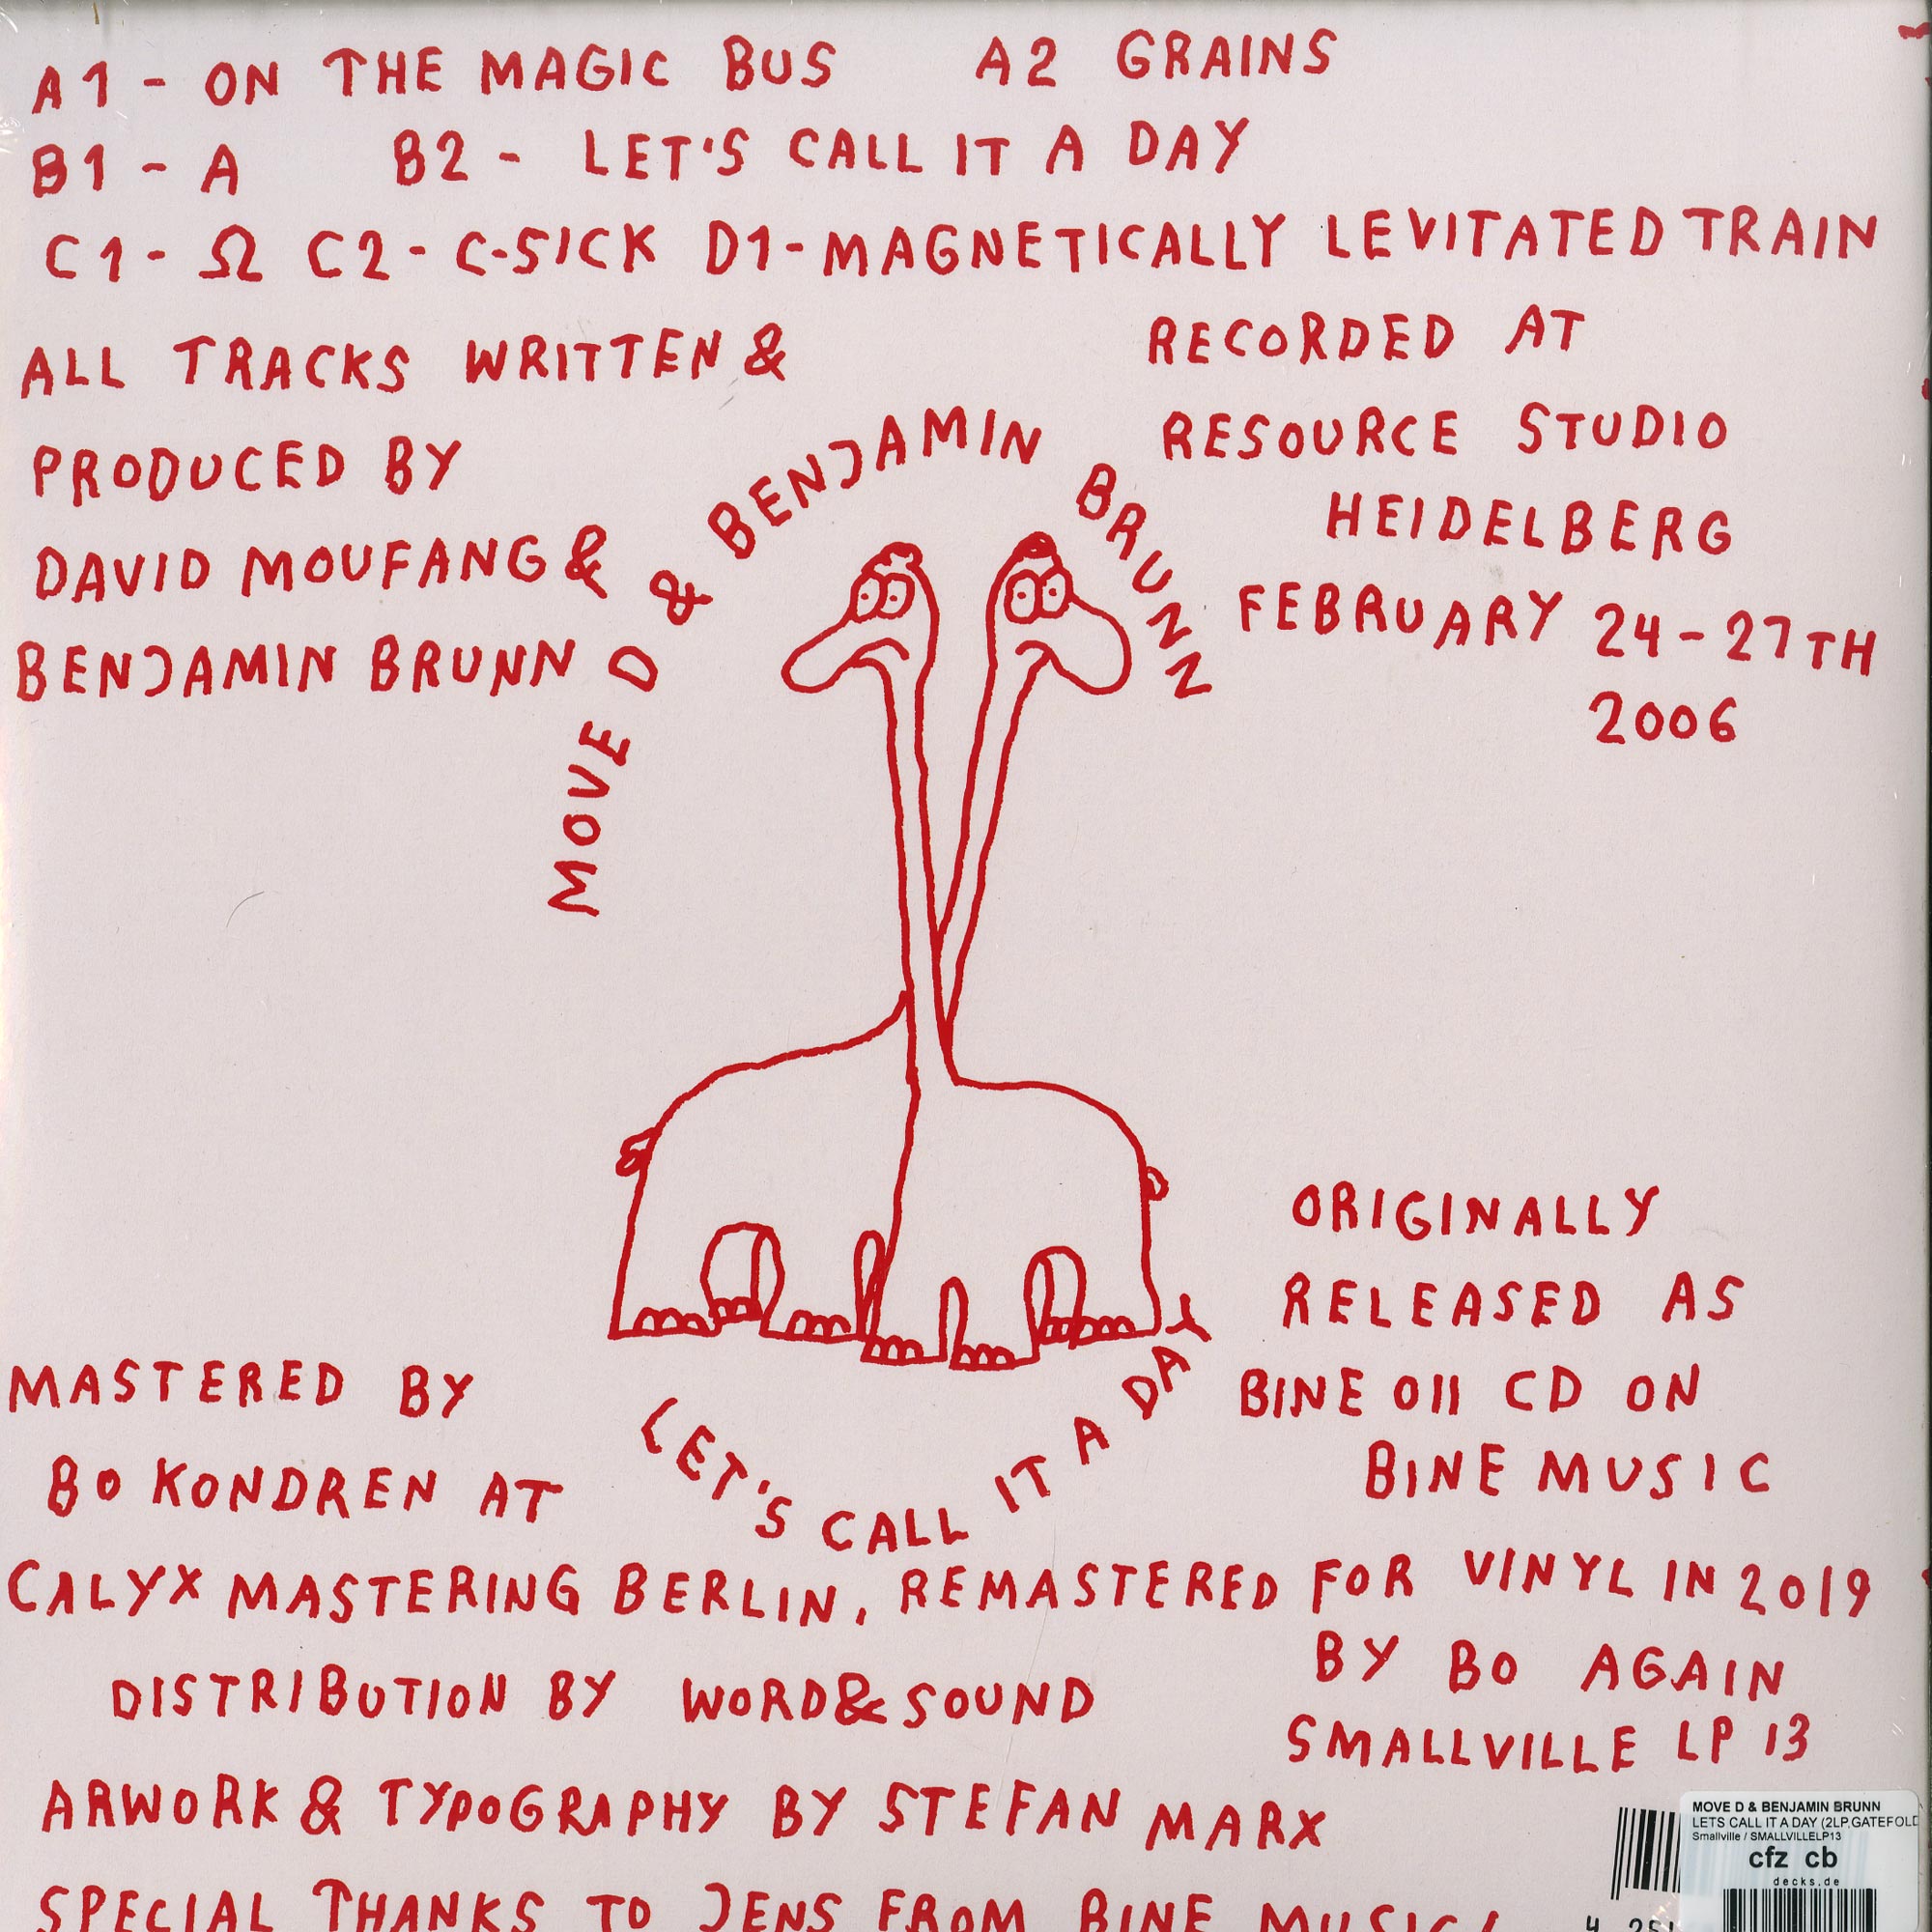 A1 - ON THE MAGIC BUS A2 GRAINS
B1 - A B2 - LET'S CALL IT A DAY
C1 - Ω C2 - C-SICK D1 - MAGNETICALLY LEVITATED TRAIN
ALL TRACKS WRITTEN &
PRODUCED BY
DAVID MOUFANG &
BENJAMIN BRUNN
RECORDED AT
RESOURCE STUDIO
HEIDELBERG
FEBRUARY 24-27TH
2006
MOVE D & BENJAMIN BRUNN
LET'S CALL IT A DAY
ORIGINALLY
RELEASED AS
BINE 011 CD ON
BINE MUSIC
MASTERED BY
BO KONDREN AT
CALYX MASTERING BERLIN, REMASTERED FOR VINYL IN 2019
BY BO AGAIN
DISTRIBUTION BY WORD&SOUND
SMALLVILLE LP 13
ARWORK & TYPOGRAPHY BY STEFAN MARX
SPECIAL THANKS TO JENS FROM BINE MUSIC!
MOVE D & BENJAMIN BRUNN
LETS CALL IT A DAY (2LP,GATEFOLD
Smallville / SMALLVILLELP13
cfz cb
decks.de